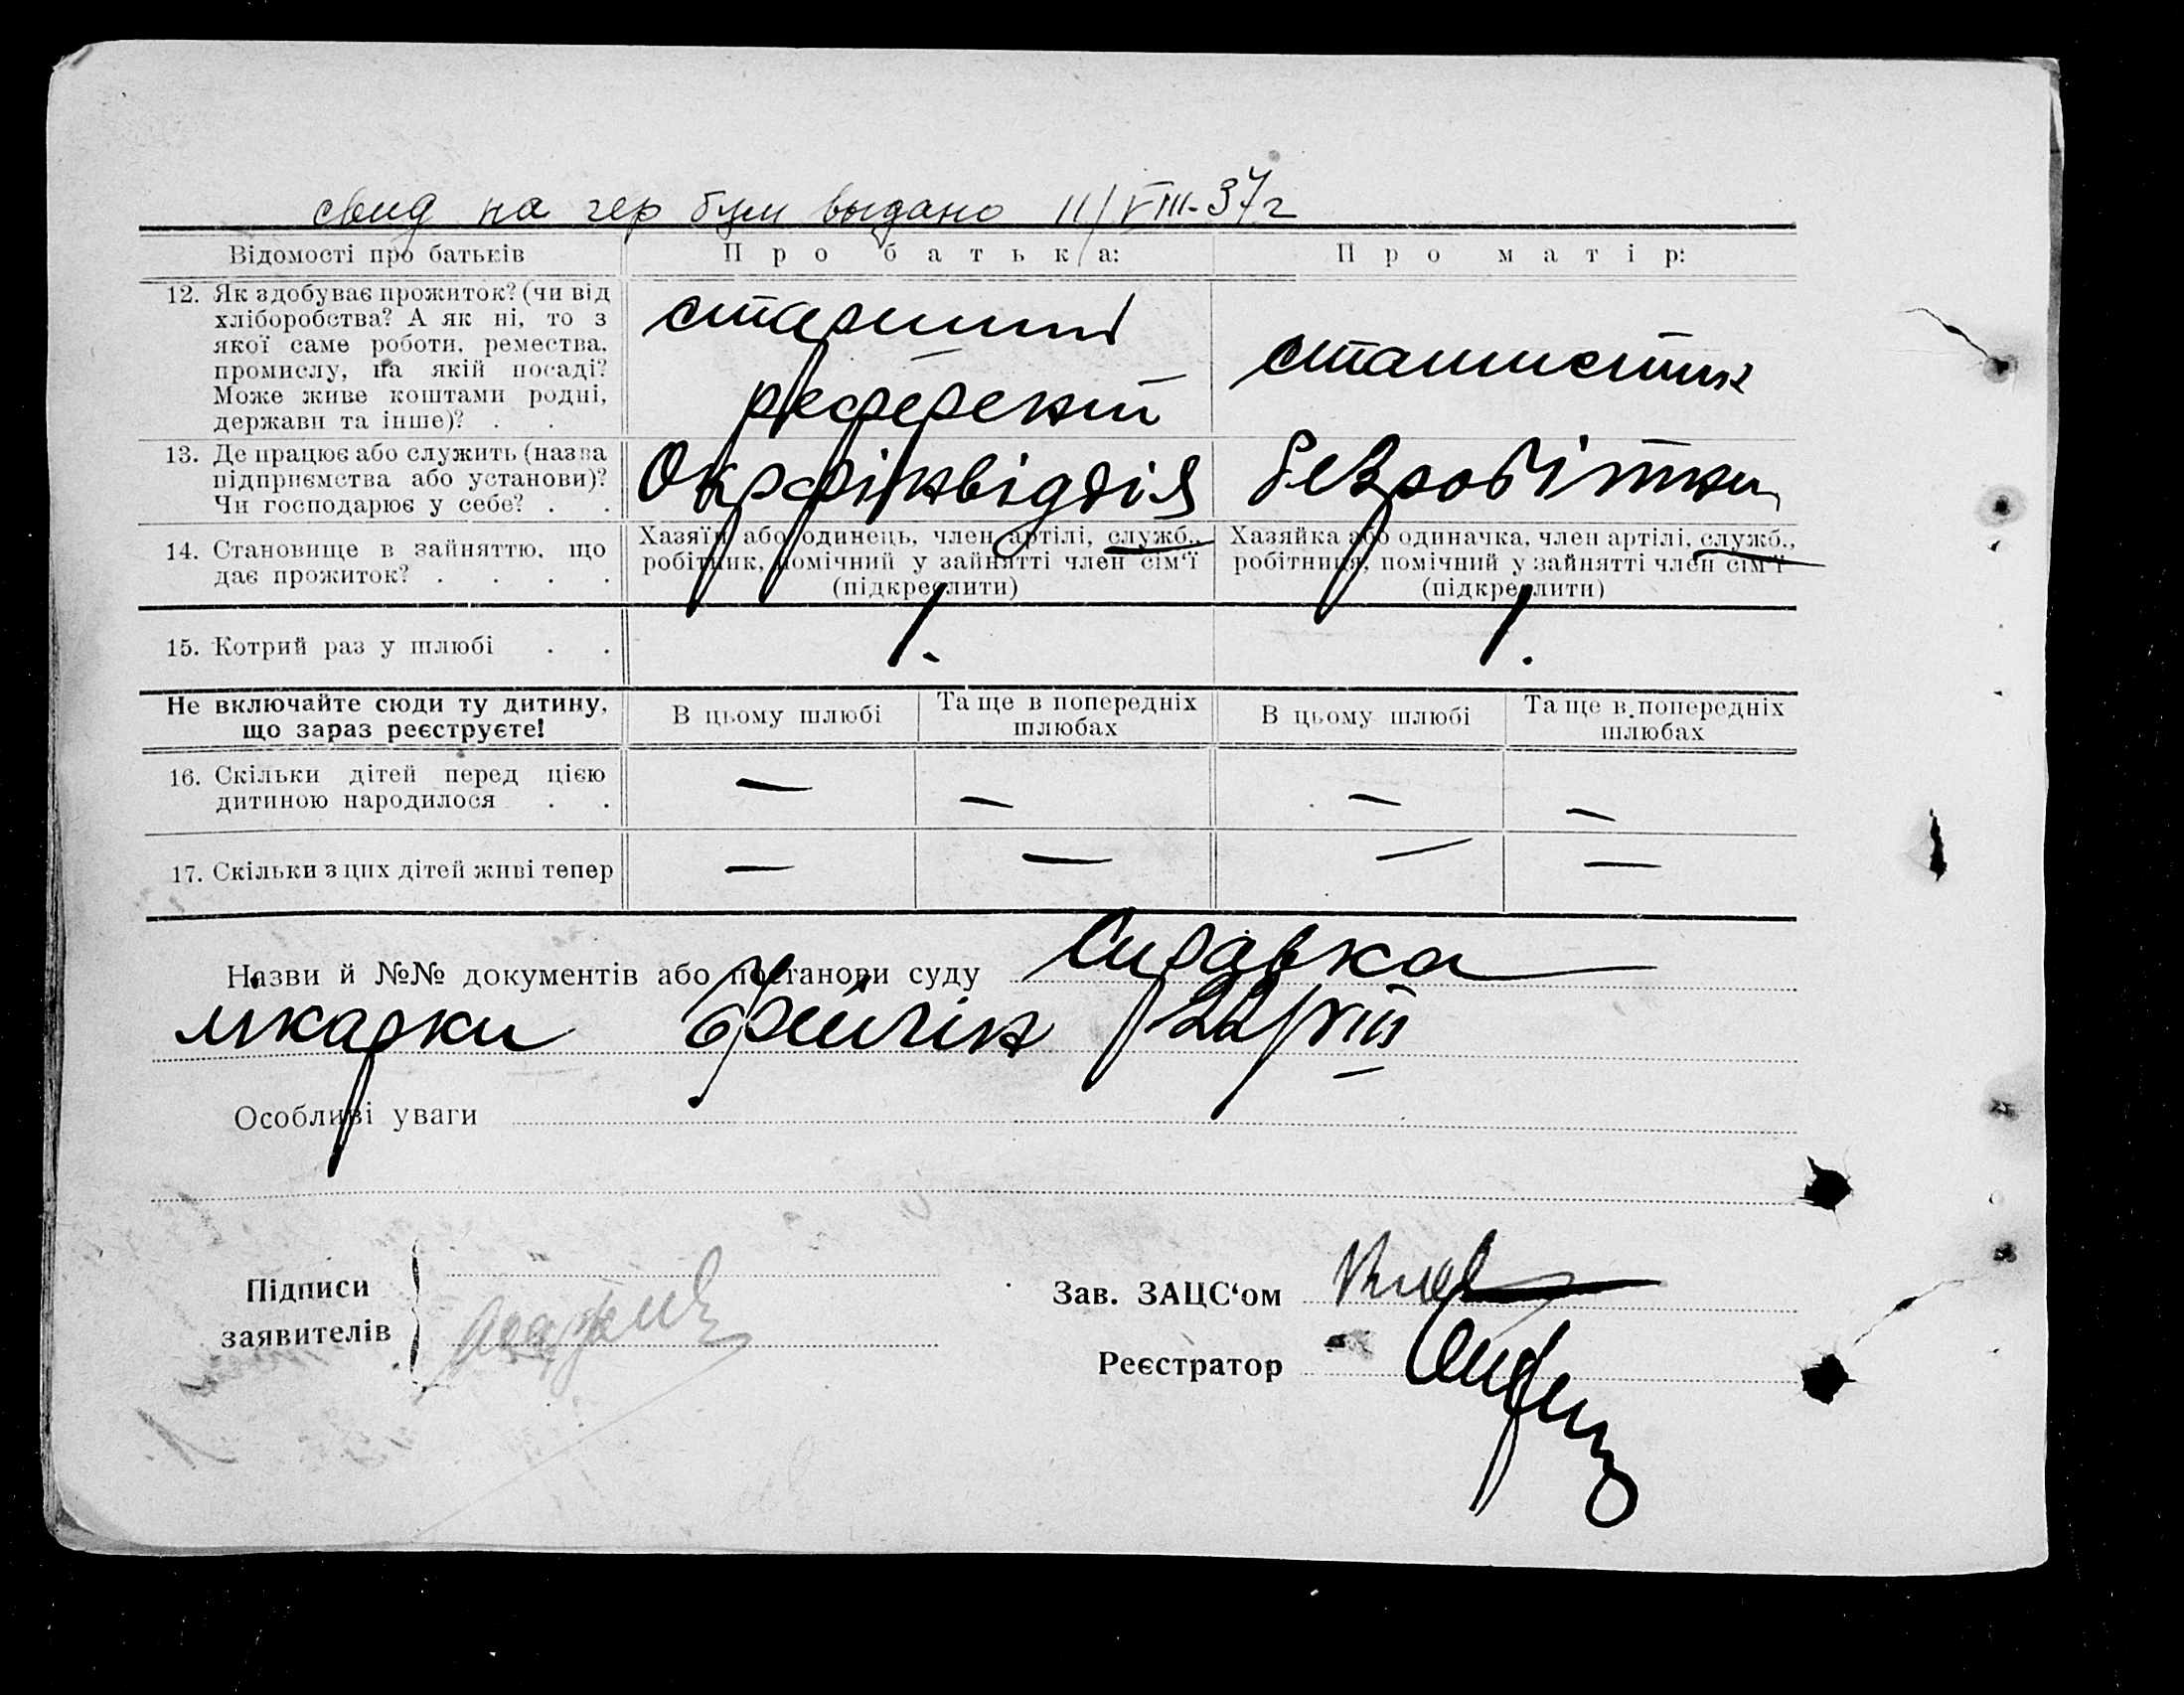 свид на гер бум выдано 11/VIII-37г
Відомості про батьків
Про батька:
Про матір:
12. Як здобуває прожиток? (чи від
хліборобства? А як ні, то з
якої саме роботи, ремества,
промислу, на якій посаді?
Може живе коштами родні,
держави та інше)? . .
старший
референт
статистик
13. Де працює або служить (назва
підприємства або установи)?
Чи господарює у себе? . .
Окрфінвідділ
безробітна
14. Становище в зайняттю, що
дає прожиток? . . . .
Хазяїн або одинець, член артілі, служб.,
робітник, помічний у зайнятті член сім'ї
(підкреслити)
Хазяйка або одиначка, член артілі, служб.,
робітниця, помічний у зайнятті член сім'ї
(підкреслити)
15. Котрий раз у шлюбі . .
1.
1.
Не включайте сюди ту дитину,
що зараз реєструєте!
В цьому шлюбі
Та ще в попередніх
шлюбах
В цьому шлюбі
Та ще в попередніх
шлюбах
16. Скільки дітей перед цією
дитиною народилося . .
— — — —
17. Скільки з цих дітей живі тепер
— — — —
Назви й №№ документів або постанови суду Справка
лікарки 22/VIII
Особливі уваги
Підписи
заявителів
Зав. ЗАЦС‘ом
Реєстратор